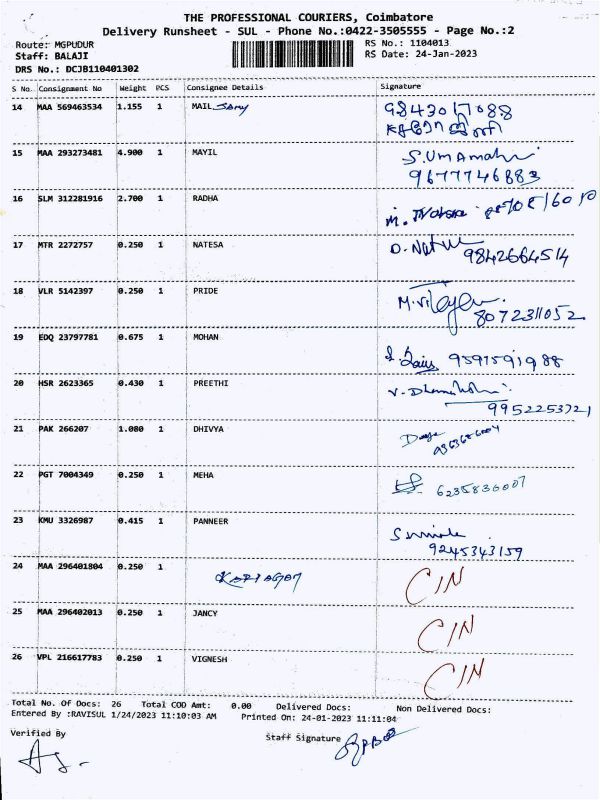 THE PROFESSIONAL COURIERS, Coimbatore
Delivery Runsheet - SUL - Phone No.:0422-3505555 - Page No.:2
Route: MGPUDUR RS No.: 1104013
Staff: BALAJI RS Date: 24-Jan-2023
DRS No.: DCJB110401302
S No. Consignment No Weight PCS Consignee Details Signature
14 MAA 569463534 1.155 1 MAIL 9843017088
15 MAA 293273481 4.900 1 MAYIL S.Uma Mahi
9677746883
16 SLM 312281916 2.700 1 RADHA
17 MTR 2272757 0.250 1 NATESA D. 9842664514
18 VLR 5142397 0.250 1 PRIDE
8072311052
19 EDQ 23797781 0.675 1 MOHAN 9591591988
20 HSR 2623365 0.430 1 PREETHI
9952253721
21 PAK 266207 1.080 1 DHIVYA
22 PGT 7004349 0.250 1 MEHA 6235836007
23 KMU 3326987 0.415 1 PANNEER
9245343159
24 MAA 296401804 0.250 1 CIN
25 MAA 296402013 0.250 1 JANCY CIN
26 VPL 216617783 0.250 1 VIGNESH CIN
Total No. Of Docs: 26 Total COD Amt: 0.00 Delivered Docs: Non Delivered Docs:
Entered By :RAVISUL 1/24/2023 11:10:03 AM Printed On: 24-01-2023 11:11:04
Verified By Staff Signature